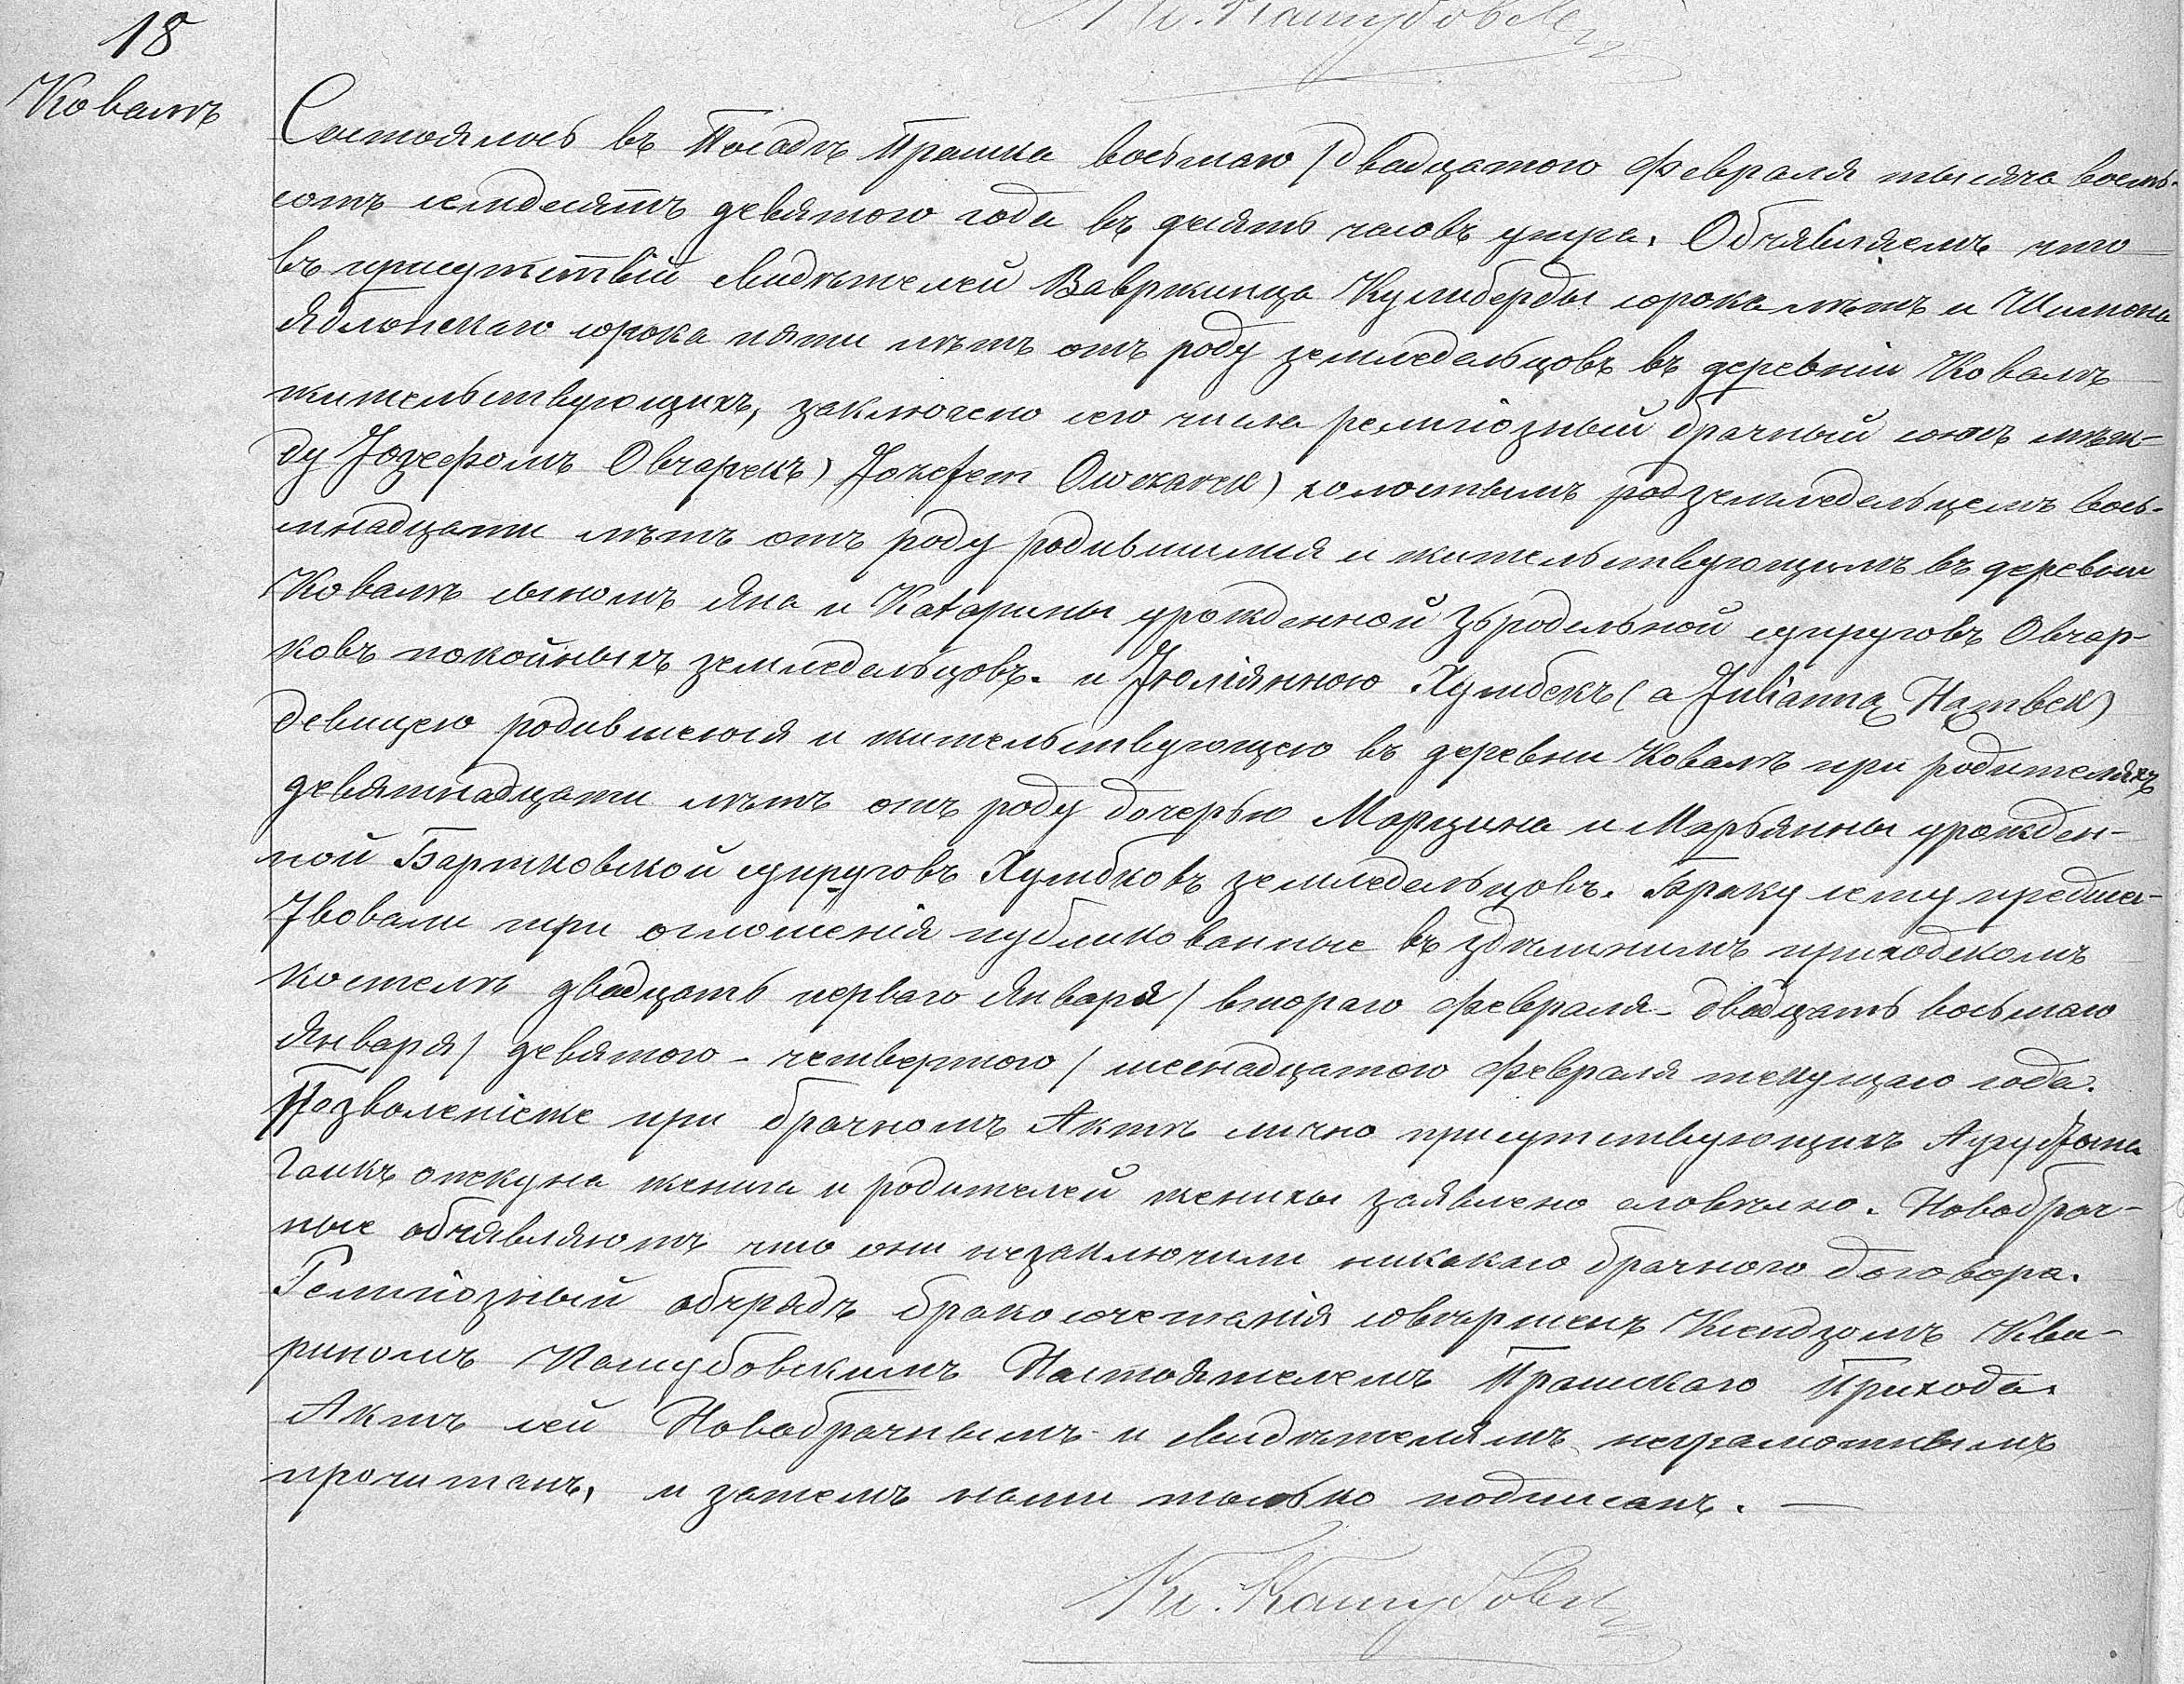 Кс. Кашубовск
18
Ковалѣ
Состоялось въ Посадѣ Прашка восьмаго / двадцатого Февраля тысяча восемь-
сотъ семдесятъ девятого года въ десять часовъ утра. Объявляемъ что
въ присутствіи свидѣтелей Вавржинца Кулиберды сорока лѣтъ и Шимона
Яблонскаго сорока пяти лѣтъ отъ роду земледельцовъ въ деревніи Ковалѣ
жительствующихъ, заключено сего числа религіозный брачный союзъ меж-
ду Іозефомъ Овчарекъ) Józefem Owczarek) холостымъ земледельцемъ вось-
мнадцати лѣтъ отъ роду родившимся и жительствующимъ въ деревни
Ковалѣ сыномъ Яна и Катарины урожденной супруговъ Овчар-
ковъ покойныхъ земледельцовъ. и Юліянною Хумбекъ ( a Julianną Hązwbek)
девицею родившеюся и жительствующею въ деревни Ковалѣ при родителяхъ
девятнадцати лѣтъ отъ роду дочерью Марцина и Марьянны урожден-
ной Бартковской супруговъ Хумбковъ земледельцовъ. Браку сему предшес-
твовали три оглошенія публикованные въ здѣшнимъ приходскомъ
костелѣ двадцать перваго Января / втораго Февраля - двадцать восьмаго
Января / девятого - четвертого / шеснадцатого Февраля текущаго года.
Позволеніеже при брачномъ Актѣ лично присутствующихъ Аугустына
опекуна жениха и родителей женихы заявлено словесно. Новобрач-
ные объявляютъ что они незаключили никакаго брачного договора.
Религіозный обрядъ бракосочетанія совершенъ Ксендзомъ Кви-
риномъ Кашубовскимъ Настоятелемъ Прашскаго Прихода.
Актъ сей Новобрачнымъ и свидѣтелямъ неграмотнымъ
прочитанъ, и затемъ нами только подписанъ. —
Кс. Кашубовск